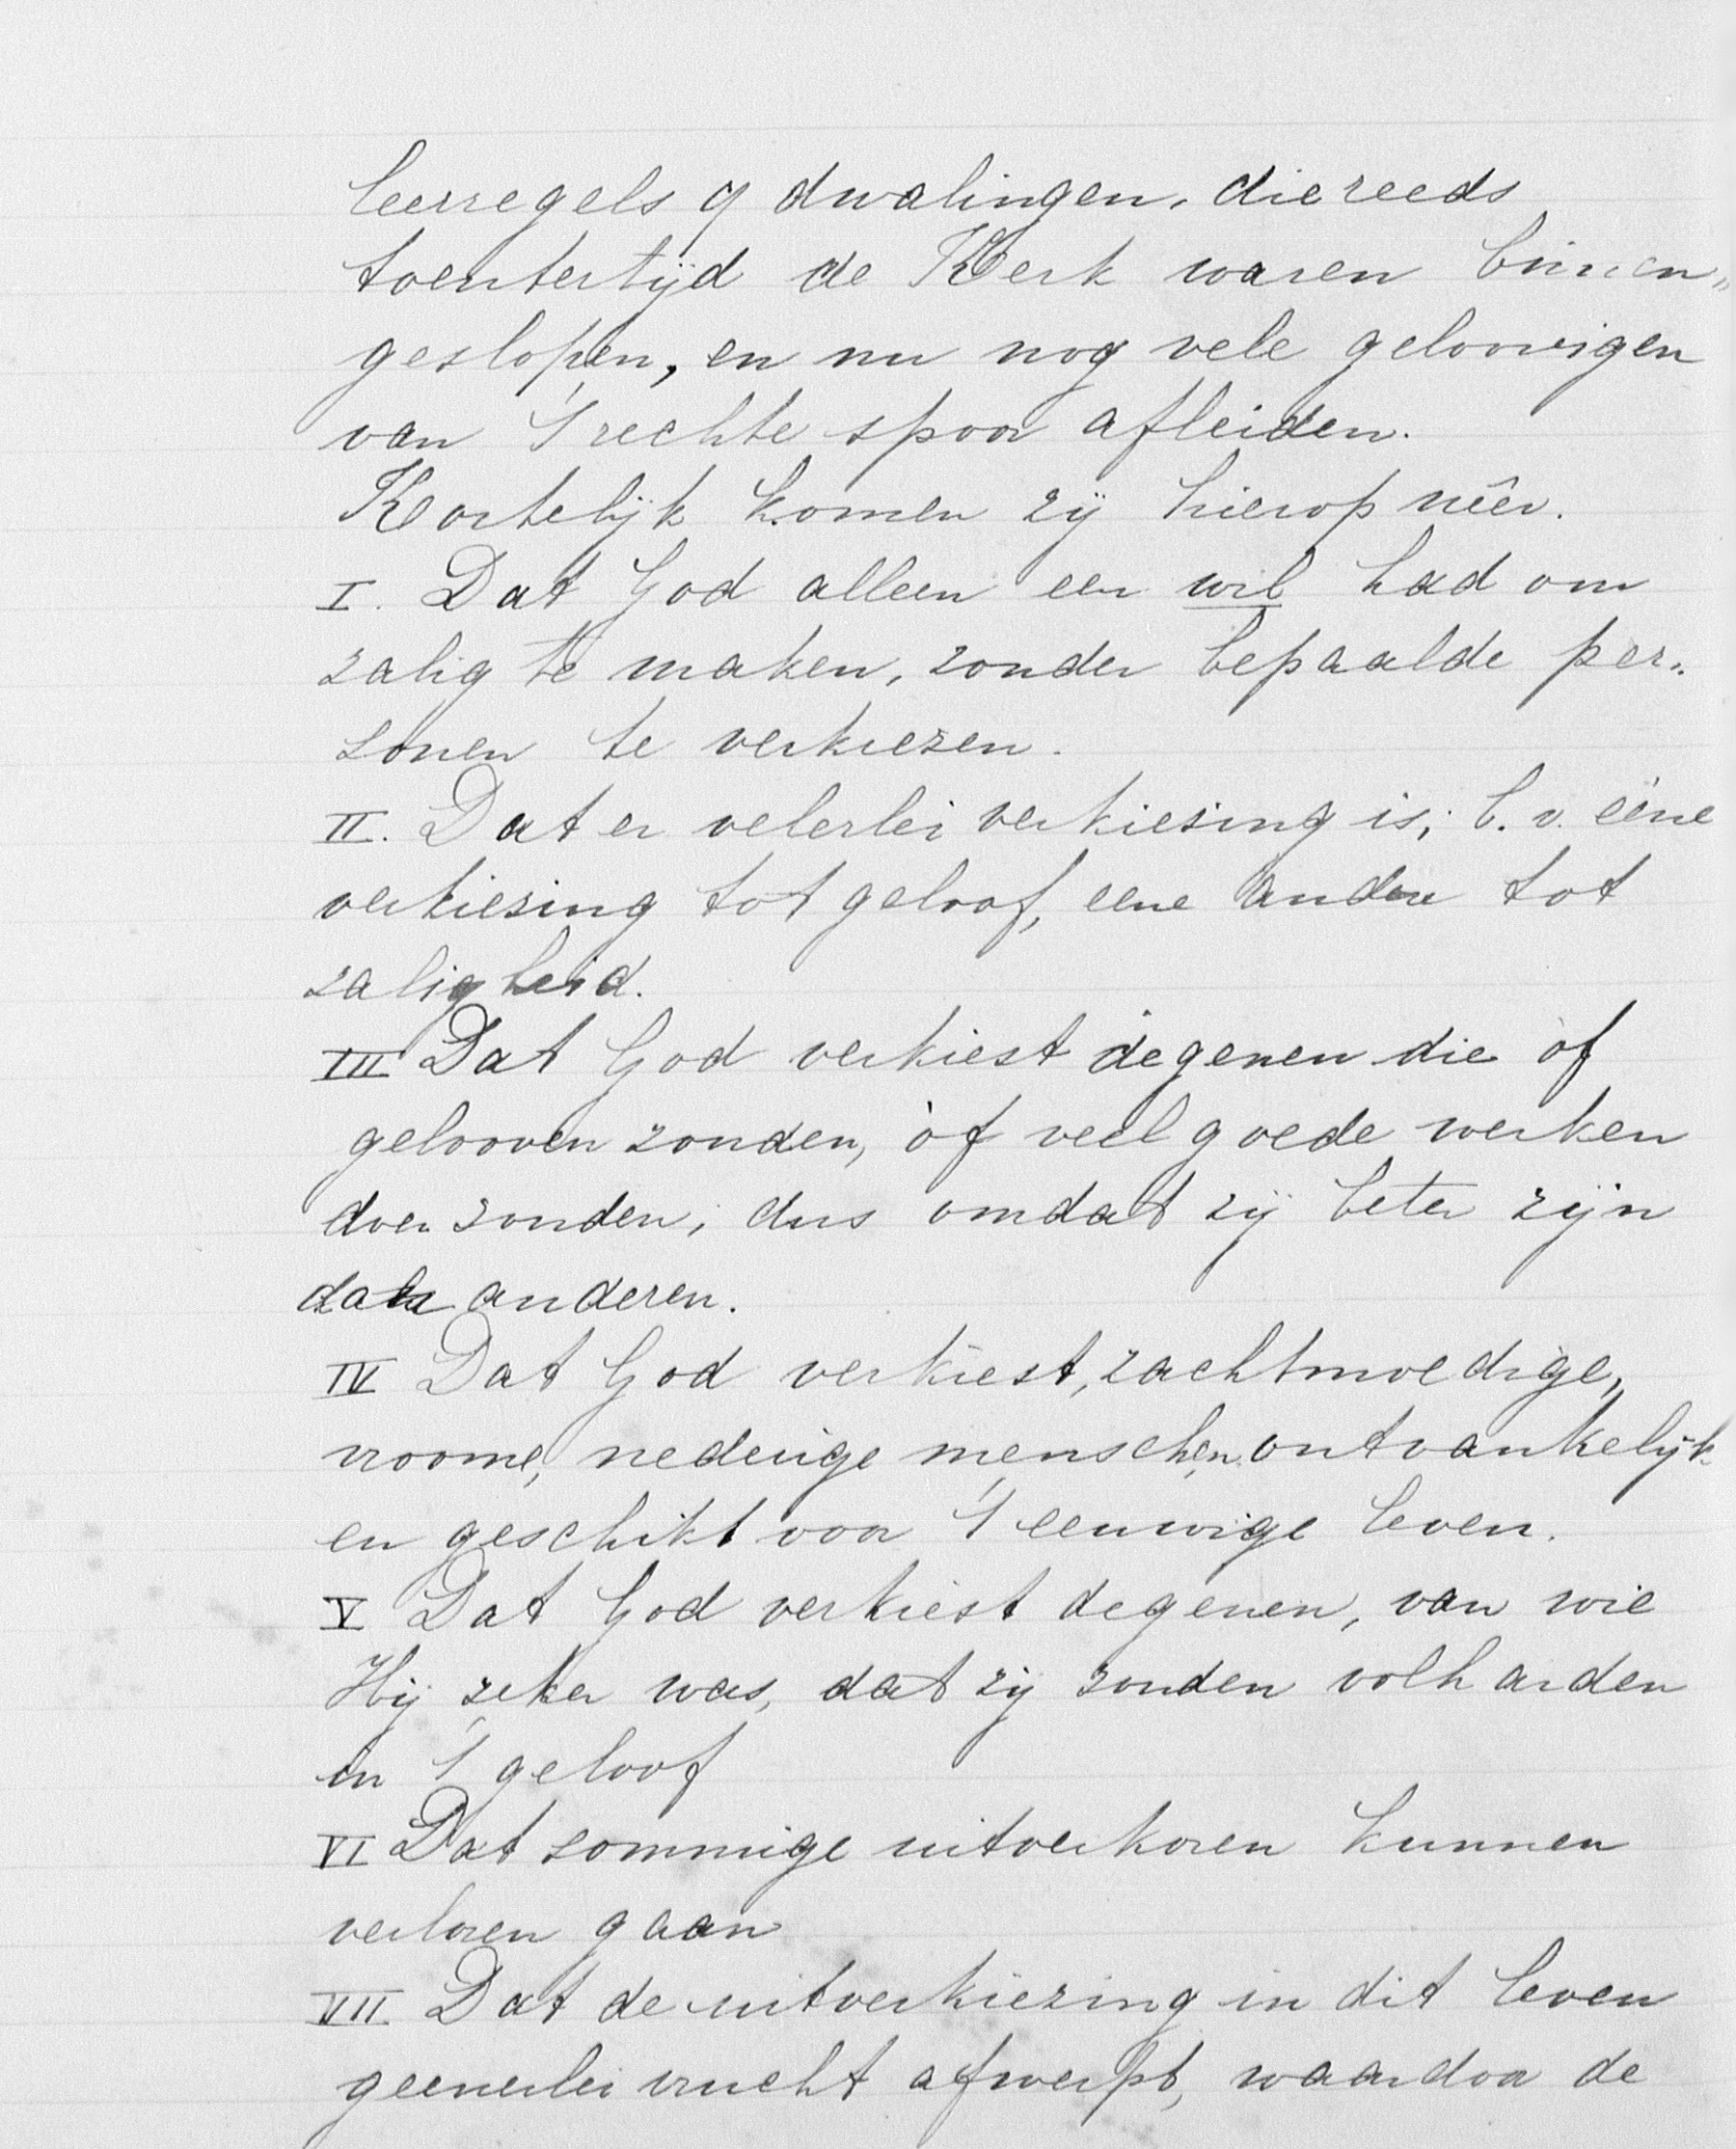 leerregels of dwalingen, die reeds
toentertijd de Kerk waren binnen„
geslopen, en nu nog vele geloovigen
van 't rechte spoor afleiden.
Kortelijk komen zij hierop nêer.
I. Dat God alleen een wil had om
zalig te maken, zonder bepaalde per„
sonen te verkiezen.
II. Dat er velerlei verkiesing is; b.v. eéne
verkiesing tot geloof, eene andere tot
zaligheid.
III Dat God verkiest degenen die òf
gelooven zouden, òf veel goede werken
doen zouden; dus omdat zij beter zijn
dan anderen.
IV Dat God verkiest, zachtmoedige,
vroome, nederige menschen, ontvankelijk
en geschikt voor 't eeuwige leven.
V Dat God verkiest degenen, van wie
Hij zeker was, dat zij zouden volharden
in 't geloof
VI Dat sommige uitverkoren kunnen
verloren gaan
VII Dat de uitverkiezing in dit leven
geenerlei vrucht afwerpt, waardoor de